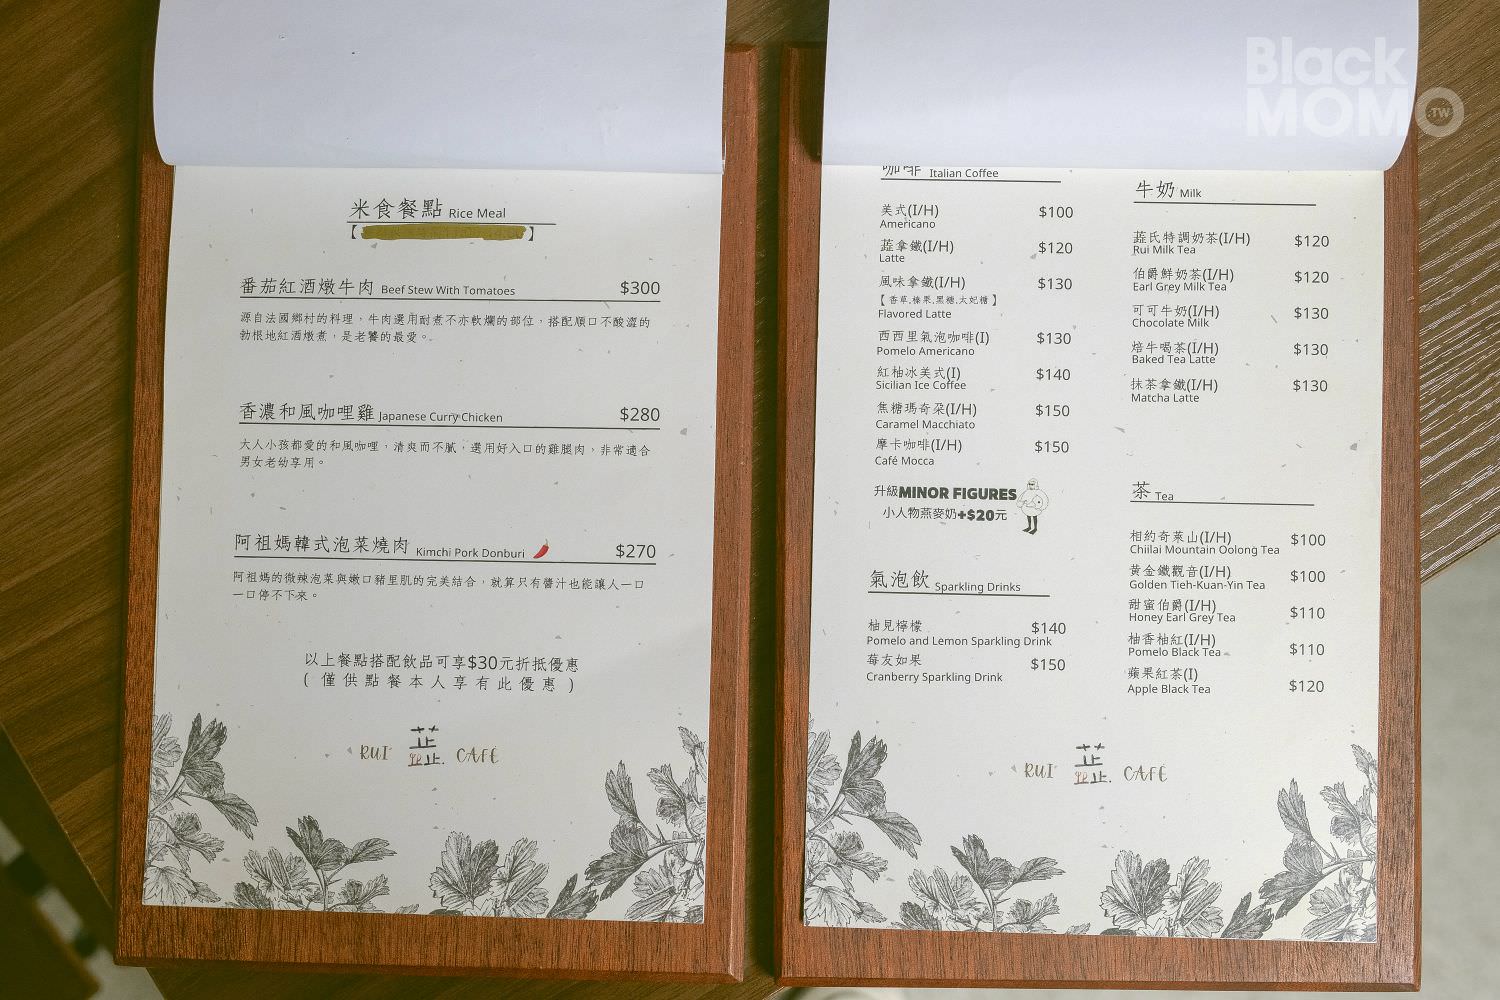 Black
MOMO
.TW
米食餐點 Rice Meal
【 】
番茄紅酒燉牛肉 Beef Stew With Tomatoes $300
源自法國鄉村的料理，牛肉選用耐煮不亦軟爛的部位，搭配順口不酸澀的
勃根地紅酒燉煮，是老饕的最愛。
香濃和風咖哩雞 Japanese Curry Chicken $280
大人小孩都愛的和風咖哩，清爽而不膩，選用好入口的雞腿肉，非常適合
男女老幼享用。
阿祖媽韓式泡菜燒肉 Kimchi Pork Donburi $270
阿祖媽的微辣泡菜與嫩口豬里肌的完美結合，就算只有醬汁也能讓人一口
一口停不下來。
以上餐點搭配飲品可享$30元折抵優惠
(僅供點餐本人享有此優惠)
RUI CAFÉ
咖啡 Italian Coffee
美式(I/H) $100
Americano
蕋拿鐵(I/H) $120
Latte
風味拿鐵(I/H) $130
【香草.榛果.黑糖.太妃糖】
Flavored Latte
西西里氣泡咖啡(I) $130
Pomelo Americano
紅柚冰美式(I) $140
Sicilian Ice Coffee
焦糖瑪奇朵(I/H) $150
Caramel Macchiato
摩卡咖啡(I/H) $150
Café Mocca
升級MINOR FIGURES
小人物燕麥奶+$20元
氣泡飲 Sparkling Drinks
柚見檸檬 $140
Pomelo and Lemon Sparkling Drink
莓友如果 $150
Cranberry Sparkling Drink
牛奶 Milk
蕋氏特調奶茶(I/H) $120
Rui Milk Tea
伯爵鮮奶茶(I/H) $120
Earl Grey Milk Tea
可可牛奶(I/H) $130
Chocolate Milk
焙牛喝茶(I/H) $130
Baked Tea Latte
抹茶拿鐵(I/H) $130
Matcha Latte
茶 Tea
相約奇萊山(I/H) $100
Chiilai Mountain Oolong Tea
黃金鐵觀音(I/H) $100
Golden Tieh-Kuan-Yin Tea
甜蜜伯爵(I/H) $110
Honey Earl Grey Tea
柚香柚紅(I/H) $110
Pomelo Black Tea
蘋果紅茶(I) $120
Apple Black Tea
RUI CAFÉ